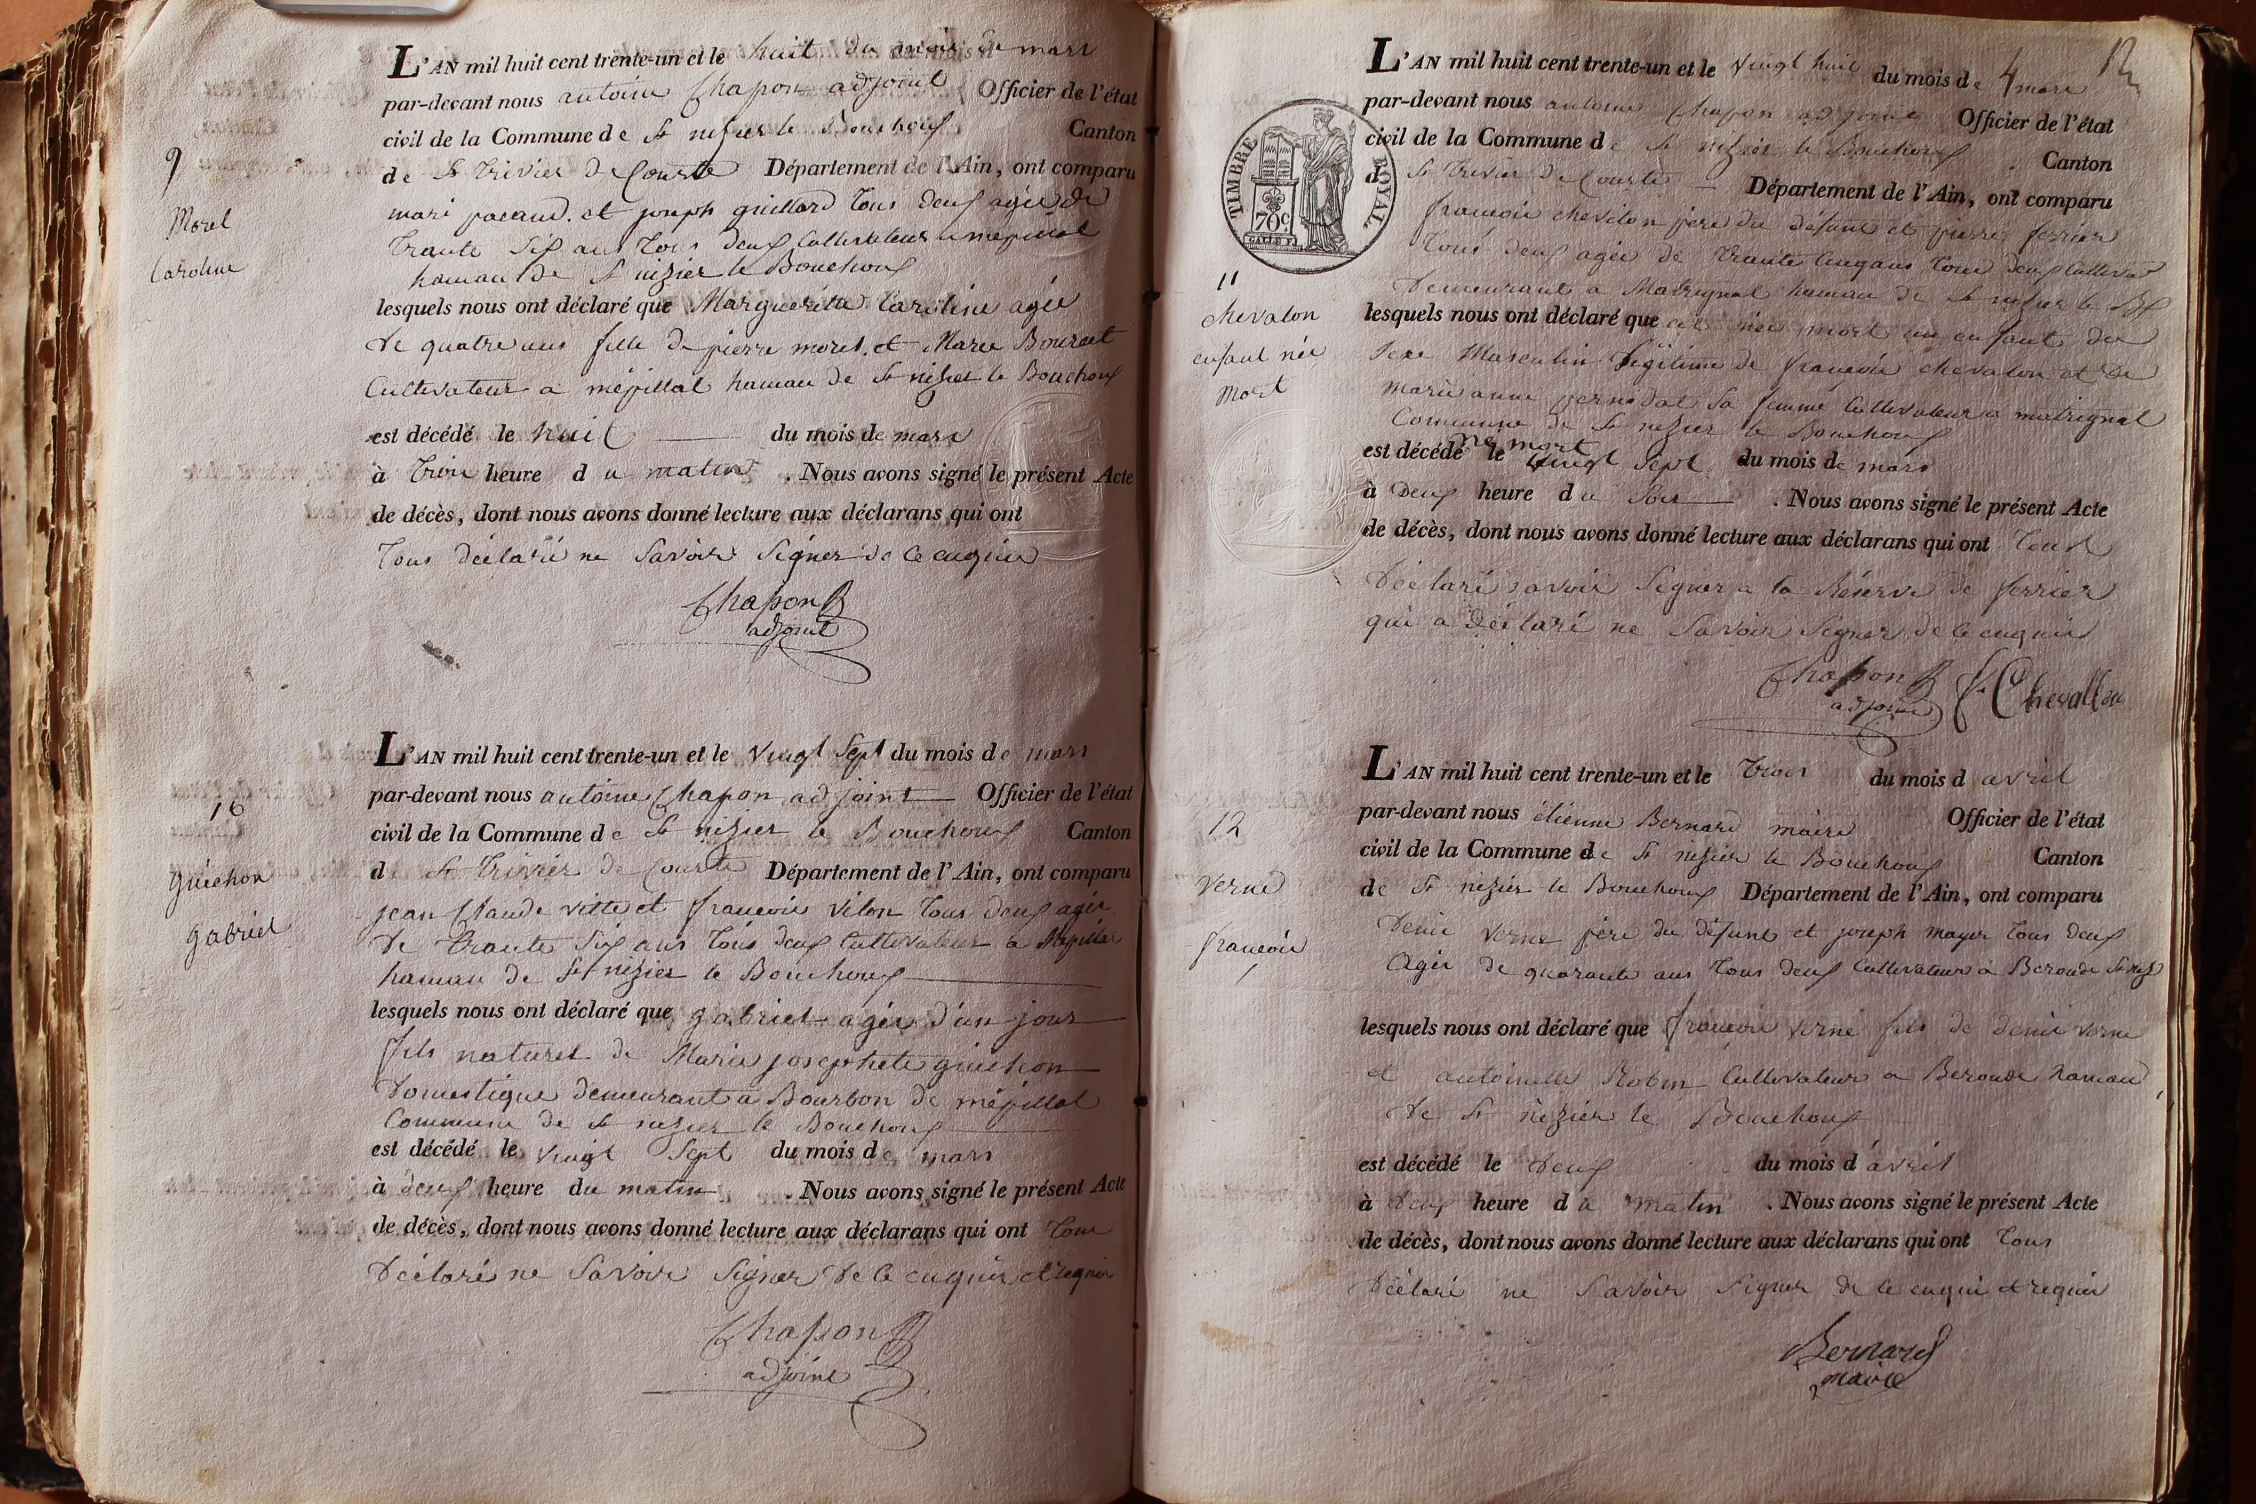 9
Morel
Caroline
L'AN mil huit cent trente-un et le huit du mois de mars
par-devant nous antoine Chapon adjoint Officier de l'état
civil de la Commune de St nizier le Bouchoux Canton
de St trivier de Courte Département de l'Ain, ont comparu
mari pacaud. et joseph guillard tous deux agés de
trante six ans tous deux Cultivateur a mépillat
hamau de St nizier le Bouchoux
lesquels nous ont déclaré que Margueritte Caroline agée
de quatre ans fille de pierre morel. et Marie
Cultivateur a mépillat hamau de St nizier le Bouchoux
est décédé le huit du mois de mars
à trois heure du matin . Nous avons signé le présent Acte
de décès, dont nous avons donné lecture aux déclarans qui ont
tous déclaré ne Savoir Signer de ce enquis
Chapon
adjoint
10
guichon
gabriel
L'AN mil huit cent trente-un et le vingt Sept du mois de mars
par-devant nous antoine Chapon adjoint Officier de l'état
civil de la Commune de St nizier le Bouchoux Canton
d St trivier de Courte Département de l'Ain, ont comparu
jean Claude vitte et françois vilon tous deux agés
de trante Six ans tous deux Cultivateur a
hamau de St nizier le Bouchoux
lesquels nous ont déclaré que gabriel agée d'un jour
fils naturel de Marie josephete guichon
domestique demeurant a Bourbon de mépillat
Commune de St nizier le Bouchoux
est décédé le vingt Sept du mois de mars
à deux heure du matin . Nous avons signé le présent Acte
de décès, dont nous avons donné lecture aux déclarans qui ont tous
déclaré ne Savoir Signer de ce enquis et requis
Chapon
adjoint
12
TIMBRE ROYAL
70c.
11
chevalon
enfant née
mort
L'AN mil huit cent trente-un et le vingt huit du mois de mars
par-devant nous antoine Chapon adjoint Officier de l'état
civil de la Commune de St nizier le Bouchoux Canton
d St trivier de Courte Département de l'Ain, ont comparu
françois chevalon père du défunt et pierre ferrier
tous deux agés de trante cinq ans tous deux Cultivat
demeurant a Matrignat hamau de St nizier le Bx
lesquels nous ont déclaré que née mort un enfant du
Sexe Masculin légitime de françois chevalon et de
marie anne Sa femme Cultivateur a matrignat
Commune de St nizier le Bouchoux
né mort
est décédé le vingt Sept du mois de mars
à deux heure du Soir . Nous avons signé le présent Acte
de décès, dont nous avons donné lecture aux déclarans qui ont tous
déclaré savoir Signer a la Réserve de ferrier
qui a déclaré ne Savoir Signer de ce enquis
Chapon
adjoint
f. Chevallon
12
verne
françois
L'AN mil huit cent trente-un et le trois du mois d avril
par-devant nous étienne Bernard maire Officier de l'état
civil de la Commune de St nizier le Bouchoux Canton
de St nizier le Bouchoux Département de l'Ain, ont comparu
denis verne père du défunt et joseph mayer tous deux
agés de quarante ans tous deux Cultivateur a Beroude St niz
lesquels nous ont déclaré que françois verne fils de denis verne
et antoinette Robin Cultivateur a Beroude hamau
de St nizier le Bouchoux
est décédé le deux du mois d'avril
à deux heure du matin . Nous avons signé le présent Acte
de décès, dont nous avons donné lecture aux déclarans qui ont tous
déclaré ne Savoir Signer de ce enquis et requis
Bernard
maire